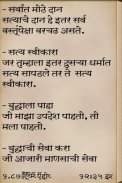 - सर्वात मोठे दान
सत्याचे दान हे इतर सर्व
वस्तूंपेक्षा वरचड असते.
- सत्य स्वीकारा
जर तुम्हाला इतर दुसर्‍या धर्मात
सत्य सापडले तर ते सत्य
स्वीकारा.
- बुद्धाला पाहा
जो माझा उपदेश पाहतो, तो
मला पाहतो.
- बुद्धाची सेवा करा
जो आजारी माणसाची सेवा